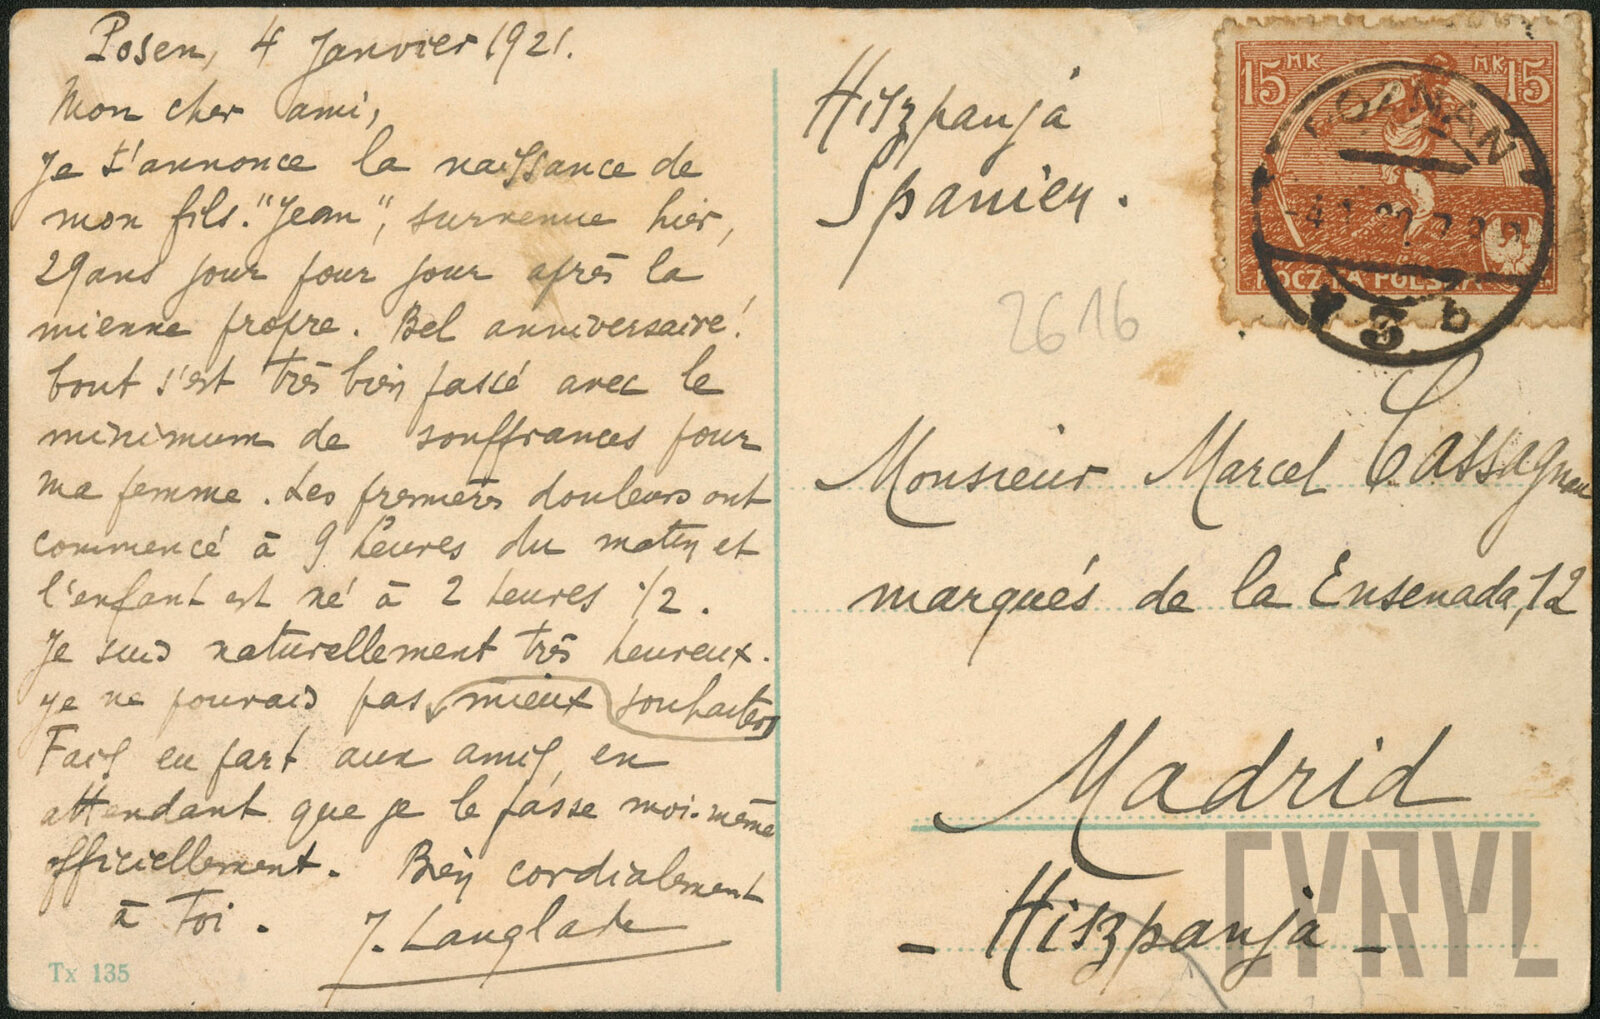 Posen, 4 Janvier 1921.
Mon cher ami,
Je t'annonce la naissance de
mon fils "Jean", survenue hier,
29 ans jour pour jour après la
mienne propre. Bel anniversaire!
tout s'est très bien passé avec le
minimum de souffrances pour
ma femme. Les premières douleurs ont
commencé à 9 heures du matin et
l'enfant est né à 2 heures 1/2.
Je suis naturellement très heureux.
Je ne pouvais pas mieux souhaiter
Fais en part aux amis, en
attendant que je le fasse moi-même
officiellement. Bien cordialement
à toi. J. Langlade
Tx 135
Hiszpanja
Spanien.
15 MK MK 15
POZNAŃ
POCZTA POLSKA
* 3 b
2616
Monsieur Marcel Cassagnau
marqués de la Ensenada, 12
Madrid
- Hiszpanja -
CYRYL